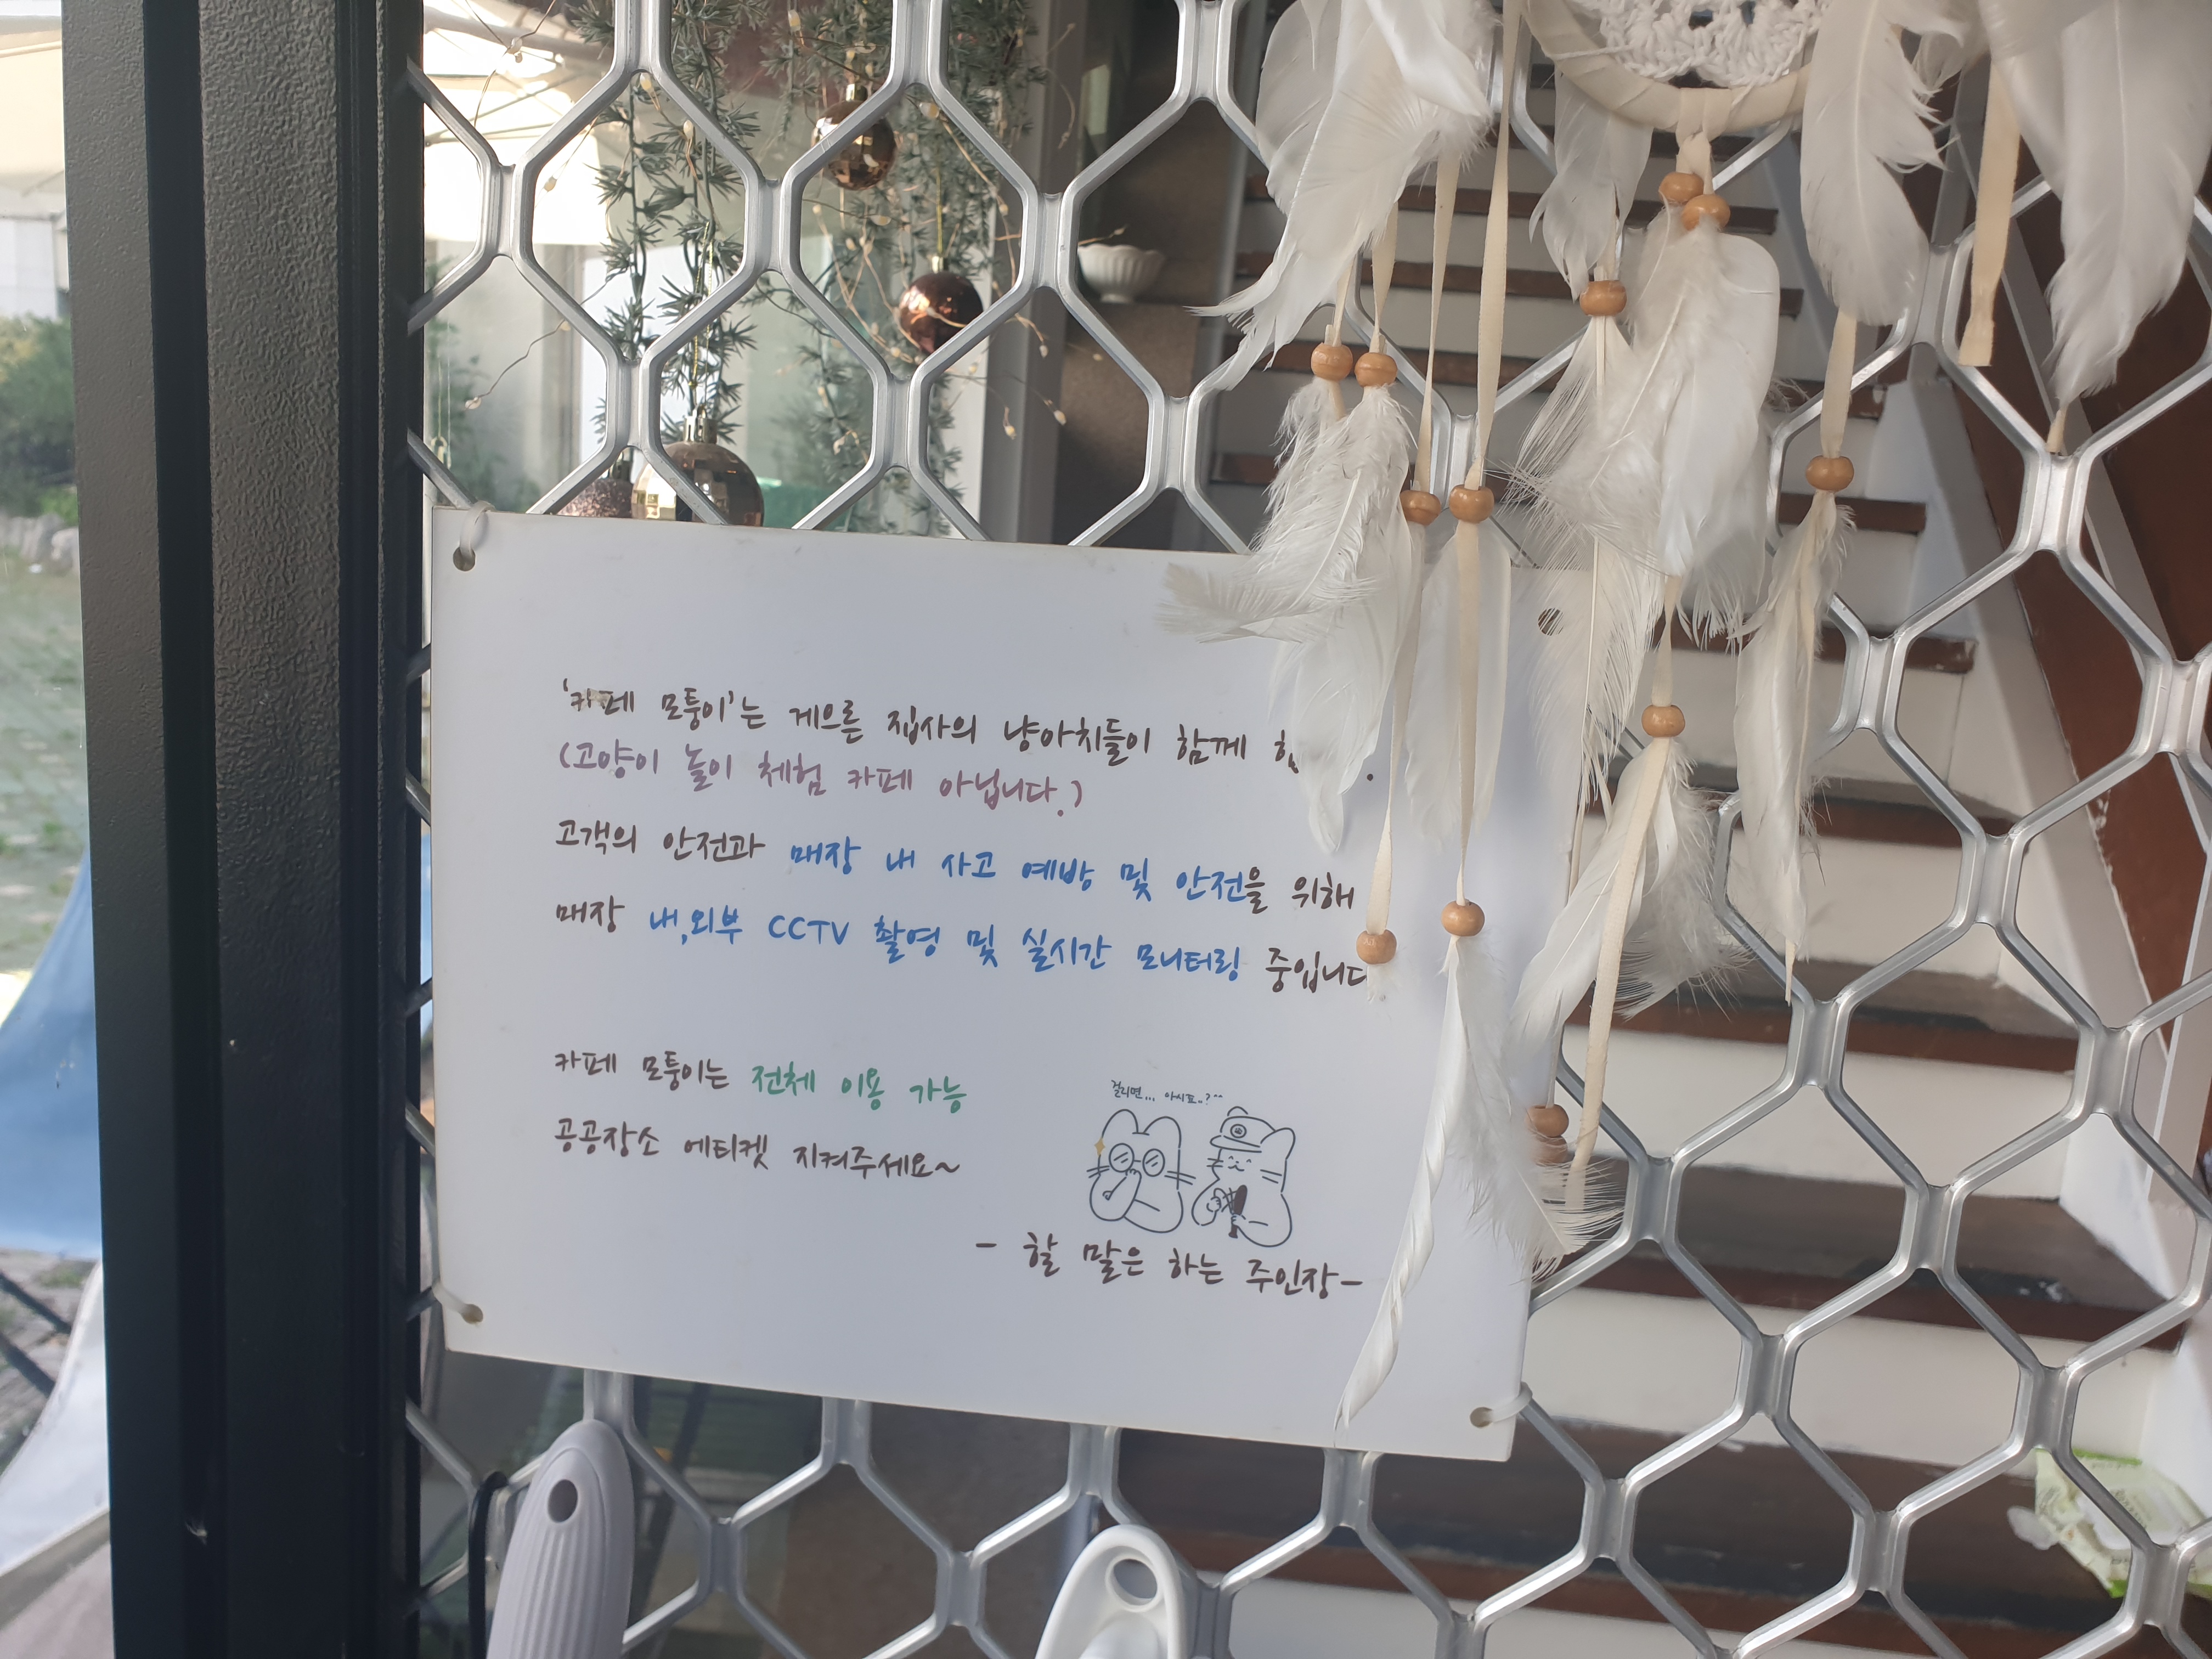 '카페 모퉁이'는 게으른 집사의 냥아치들이 함께
(고양이 놀이 체험 카페 아닙니다.)
고객의 안전과 매장 내 사고 예방 및 안전을 위해
매장 내,외부 CCTV 촬영 및 실시간 모니터링 중입니다
카페 모퉁이는 전체 이용 가능
공공장소 에티켓 지켜주세요~
걸리면... 아시죠..?^^
- 할 말은 하는 주인장-